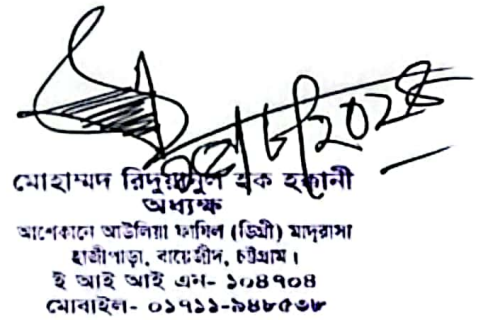 মোহাম্মদ রিদুয়ানুল হক হক্কানী
অধ্যক্ষ
আশেকানে আউলিয়া ফাযিল (ডিগ্রী) মাদ্রাসা
হাজীপাড়া, বায়েজীদ, চট্টগ্রাম।
ই আই আই এন- ১০৪৭০৪
মোবাইল- ০১৭১১-৯৪৮৫৩৮